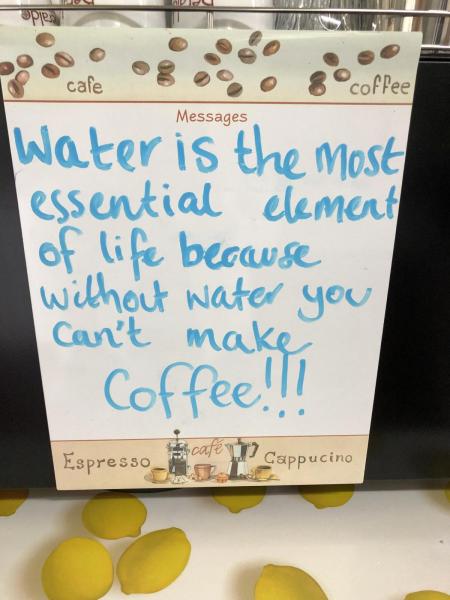 cafe coffee
Messages
Water is the most
essential element
of life because
without water you
can't make
Coffee!!!
café
Espresso Cappucino